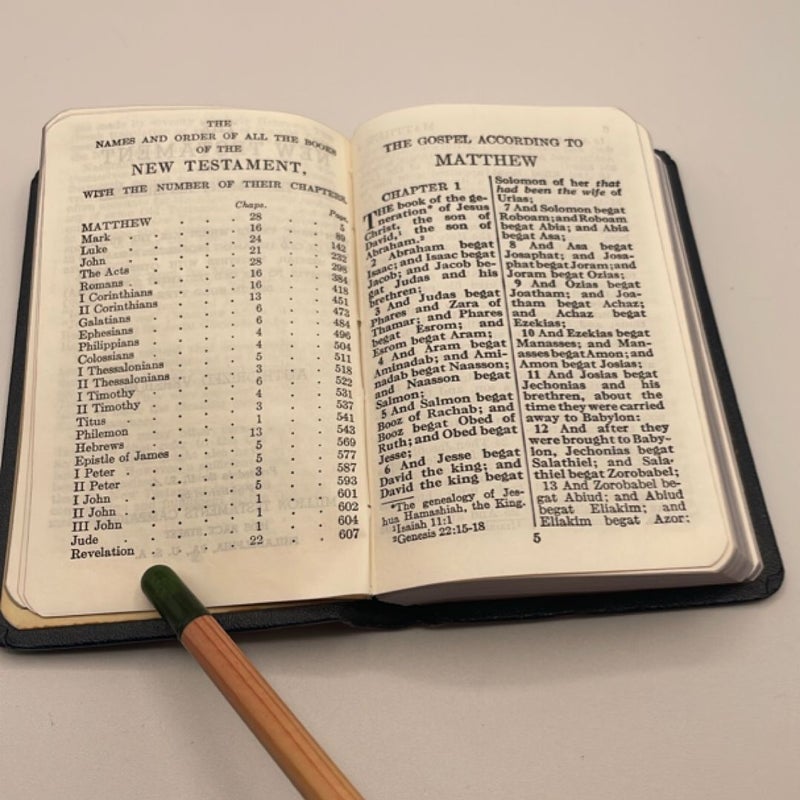 THE
NAMES AND ORDER OF ALL THE BOOKS
OF THE
NEW TESTAMENT,
WITH THE NUMBER OF THEIR CHAPTERS.
Chaps. Page.
MATTHEW 28 5
Mark 16 89
Luke 24 142
John 21 232
The Acts 28 298
Romans 16 384
I Corinthians 16 418
II Corinthians 13 451
Galatians 6 473
Ephesians 6 484
Philippians 4 496
Colossians 4 504
I Thessalonians 5 511
II Thessalonians 3 518
I Timothy 6 522
II Timothy 4 531
Titus 3 537
Philemon 1 541
Hebrews 13 543
Epistle of James 5 569
I Peter 5 577
II Peter 3 587
I John 5 593
II John 1 601
III John 1 602
Jude 1 604
Revelation 22 607
THE GOSPEL ACCORDING TO
MATTHEW
CHAPTER 1
THE book of the ge-
neration* of Jesus
Christ, the son of
David,¹ the son of
Abraham.²
2 Abraham begat
Isaac; and Isaac begat
Jacob; and Jacob be-
gat Judas and his
brethren;
3 And Judas begat
Phares and Zara of
Thamar; and Phares
begat Esrom; and
Esrom begat Aram;
4 And Aram begat
Aminadab; and Ami-
nadab begat Naasson;
and Naasson begat
Salmon;
5 And Salmon begat
Booz of Rachab; and
Booz begat Obed of
Ruth; and Obed begat
Jesse;
6 And Jesse begat
David the king; and
David the king begat
*The genealogy of Jes-
hua Hamashiah, the King.
¹Isaiah 11:1
²Genesis 22:15-18
Solomon of her that
had been the wife of
Urias;
7 And Solomon begat
Roboam; and Roboam
begat Abia; and Abia
begat Asa;
8 And Asa begat
Josaphat; and Josa-
phat begat Joram; and
Joram begat Ozias;
9 And Ozias begat
Joatham; and Joa-
tham begat Achaz;
and Achaz begat
Ezekias;
10 And Ezekias begat
Manasses; and Man-
asses begat Amon; and
Amon begat Josias;
11 And Josias begat
Jechonias and his
brethren, about the
time they were carried
away to Babylon:
12 And after they
were brought to Baby-
lon, Jechonias begat
Salathiel; and Sala-
thiel begat Zorobabel;
13 And Zorobabel be-
gat Abiud; and Abiud
begat Eliakim; and
Eliakim begat Azor;
5